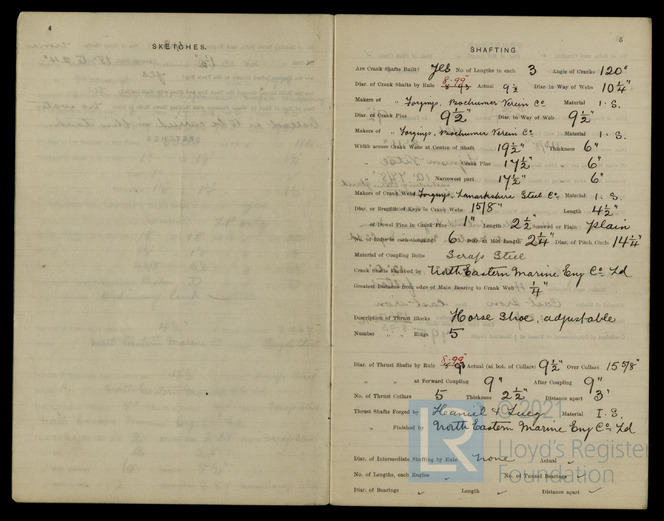 4
SKETCHES.
5
SHAFTING
Are Crank Shafts Built? Yes No. of Lengths in each 3 Angle of Cranks 120°
Diar. of Crank Shafts by Rule 8.99" Actual 9½ Diar. in Way of Webs 10¼"
Makers of „ Forgings, Bochumer Verein Co Material I.S.
Diar. of Crank Pins 9½" Diar. in Way of Webs 9½"
Makers of „ Forgings, Bochumer Verein Co Material I.S.
Width across Crank Webs at Centre of Shaft 19½" Thickness 6"
„ „ Crank Pins 17½" „ 6"
„ „ Narrowest part 17½" „ 6"
Makers of Crank Web Forgings, Lanarkshire Steel Co. Material I.S.
Diar. or Breadth of Keys in Crank Webs 1 5/8" Length 4½"
„ of Dowel Pins in Crank Pins 1" Length 2½" Screwed or Plain Plain
No. of Bolts in each Coupling 6 Diar. at Mid Length 2¼" Diar. of Pitch Circle 14¼"
Material of Coupling Bolts Scrap Steel
Crank Shafts Finished by North Eastern Marine Eng Co Ld
Greatest Distance from edge of Main Bearing to Crank Web ¼"
Description of Thrust Blocks Horse Shoe, adjustable
Number „ „ Rings 5
Diar. of Thrust Shafts by Rule 8.99" Actual (at bot. of Collars) 9½" Over Collars 15 5/8"
„ „ at Forward Coupling 9" After Coupling 9"
No. of Thrust Collars 5 Thickness 2½" Distance apart 3"
Thrust Shafts Forged by Haniel & Lueg Material I.S.
„ Finished by North Eastern Marine Eng Co Ld
Diar. of Intermediate Shafting by Rule none Actual
No. of Lengths, each Engine No. of Tunnel Bearings
Diar. of Bearings Length Distance apart
LR © 2021
Lloyd's Register
Foundation